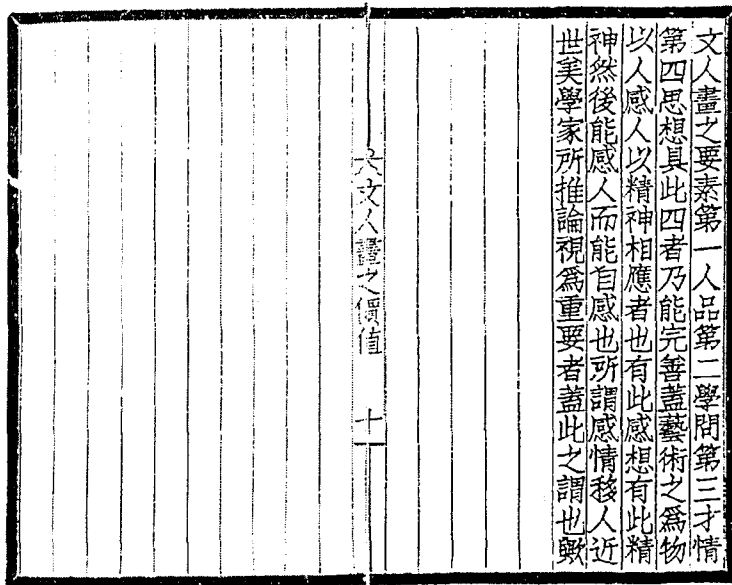 文人畫之要素第一人品第二學問第三才情
第四思想具此四者乃能完善蓋藝術之爲物
以人感人以精神相應者也有此感想有此精
神然後能感人而能自感也所謂感情移人近
世美學家所推論視爲重要者蓋此之謂也歟
文人畫之價值 十